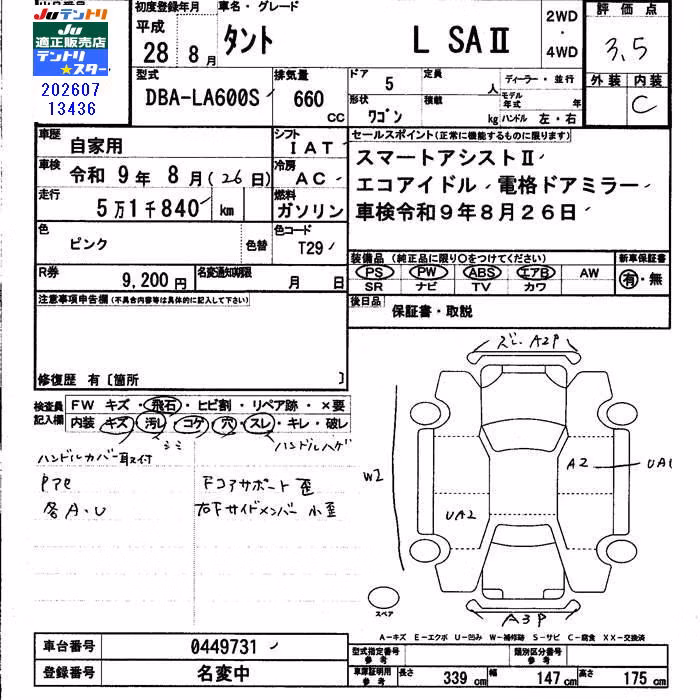 Juテントリ
Ju
適正販売店
テントリ
★スター
202607
13436
初度登録年月
平成
28 8月
車名・グレード
タント L SAⅡ
2WD
・
4WD
評価点
3.5
外装 内装
C
型式
DBA-LA600S
排気量
660
CC
ドア 5
定員 人
ディーラー・並行
モデル年式 年
形状 ワゴン
積載 kg
ハンドル 左・右
車歴 自家用
シフト IAT
車検 令和 9年 8月(26日)
冷房 AC
走行 5万1千840 km
燃料 ガソリン
色 ピンク
色替
色コード T29
R券 9,200円
名変通知期限 月 日
セールスポイント(正常に機能するものに限ります)
スマートアシストⅡ
エコアイドル 電格ドアミラー
車検令和9年8月26日
装備品(純正品に限り○をつけてください)
新車保証書
PS PW ABS エアB AW
SR ナビ TV カワ
有・無
後日品 保証書・取説
注意事項申告欄(不具合内容等は具体的に記入して下さい)
修復歴 有〔箇所 〕
検査員記入欄
FW キズ・飛石・ヒビ割・リペア跡・×要
内装 キズ・汚レ・コゲ・穴・スレ・キレ・破レ
ハンドルハゲ
ハンドルカバー取付
各A・U
Fコアサポート歪
右Fサイドメンバー 小歪
A2P
W2
A2
UA1
UA2
A3P
スペア
A−キズ E−エクボ U−凹み W−補修跡 S−サビ C−腐食 XX−交換済
車台番号 0449731
登録番号 名変中
型式指定番号
参考
類別区分番号
参考
車庫証明用
参考
長さ 339 cm 幅 147 cm 高さ 175 cm